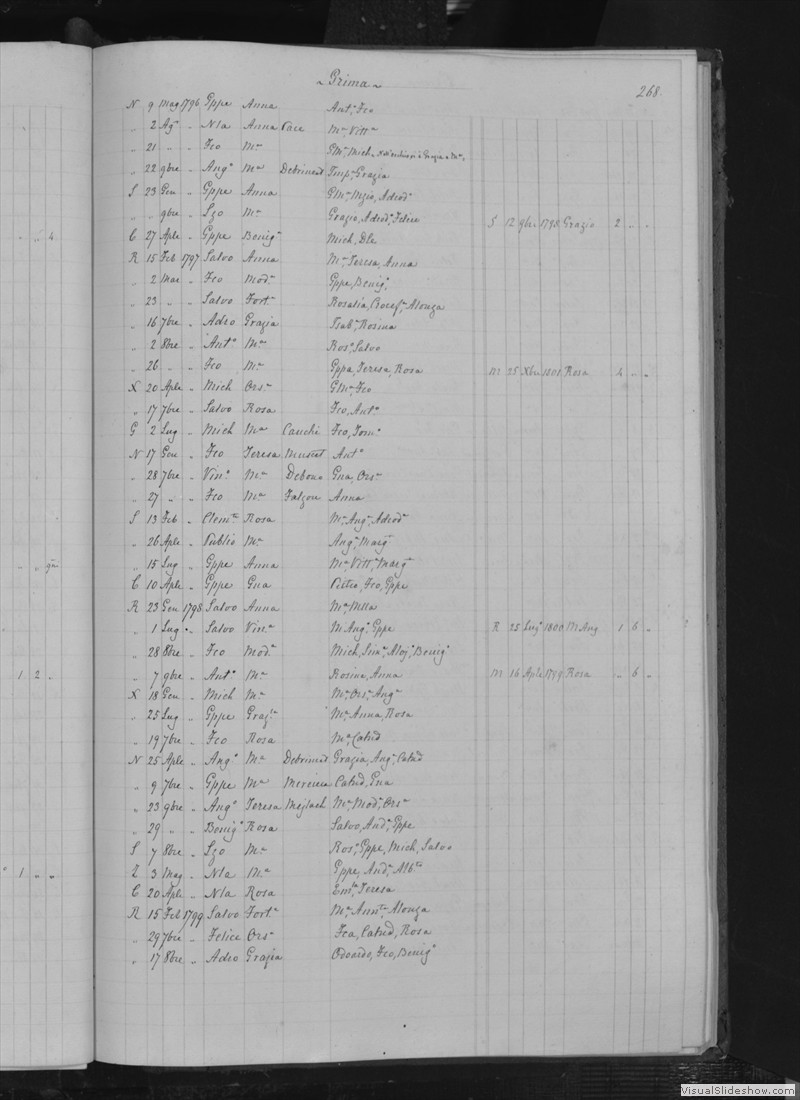 ~ Prima ~
268.
N 9 Mag 1796 Gppe Anna Ant.ª Fco
" 2 Ag.º " Nla Anna Pace M.ª Vitt.ª
" 21 " " Fco M.ª GM.ª Mich
" 22 9bre " Ang.º M.ª Debrincat Grazia
S 23 Gen " Gppe Anna GM.ª Adeod.ª
" " 9bre " Lzo M.ª Grazio, Adeod.ª Felice S 12 9bre 1798 Grazio 2 " "
" " 4
C 27 Aple " Gppe Benig.ª Mich, Dla
R 15 Feb 1797 Salvo Anna M.ª Teresa, Anna
" 2 Mar " Fco Mod.ª Gppe, Benig.ª
" 23 " " Salvo Fort.ª Rosalia, Crocef.ª Alonza
" 16 7bre " Adeo Grazia Isab.ª Rosina
" 2 8bre " Ant.º M.ª Ros.ª Salvo
" 26 " " Fco M.ª Gppa, Teresa, Rosa M 25 Xbre 1801 Rosa 4 " "
X 20 Aple " Mich Ors.ª GM.ª Fco
" 17 7bre " Salvo Rosa Fco, Ant.º
G 2 Lug " Mich M.ª Cauchi Fco, Tom.º
N 17 Gen " Fco Teresa Muscat Ant.º
" 28 7bre " Vin.º M.ª Debono Gna, Ors.ª
" 27 " " Fco M.ª Falzon Anna
S 13 Feb " Clem.te Rosa M.ª Ang.ª Adeod.ª
" 26 Aple " Publio M.ª Ang.ª Marg.ª
" 15 Lug " Gppe Anna M.ª Vitt.ª Marg.ª
C 10 Aple " Gppe Gna Pietro, Fco, Gppe
R 23 Gen 1798 Salvo Anna M.ª Mlla
" 1 Lug " Salvo Vin.ª M.Ang.ª Gppe R 25 Lug.º 1800 M Ang 1 6 "
" 28 8bre " Fco Mod.ª Mich, Sim.ª Aloj.ª Benig.º
1 2 "
" 7 9bre " Ant.º M.ª Rosina, Anna M 16 Aple 1799 Rosa " 6 "
X 18 Gen " Mich M.ª M.ª Ors.ª Ang.ª
" 25 Lug " Gppe Graz.la M.ª Anna, Rosa
" 19 7bre " Fco Rosa M.ª Catnd
N 25 Aple " Ang.º M.ª Debrincat Grazia, Ang.ª Catnd
" 9 7bre " Gppe M.ª Mercieca Catnd, Gna
" 23 9bre " Ang.º Teresa Mejlach M.ª Mod.ª Ors.ª
" 29 " " Benig.º Rosa Salvo, And.ª Gppe
S 7 8bre " Lzo M.ª Ros.ª Gppe, Mich, Salvo
1 " "
Z 3 Mag " Nla M.ª Gppe, And.ª Alb.to
C 20 Aple " Nla Rosa Em.le Teresa
R 15 Feb 1799 Salvo Fort.ª M.ª Annt.ª Alonza
" 29 7bre " Felice Ors.ª Fca, Catnd, Rosa
" 17 8bre " Adeo Grazia Odoardo, Fco, Benig.º
VisualSlideshow.com